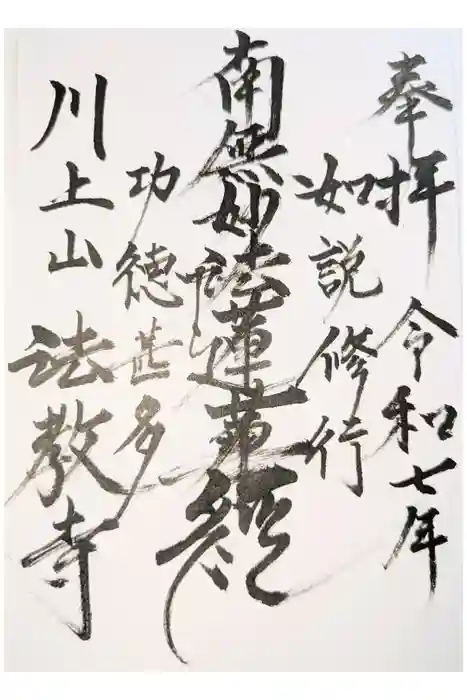 奉拝 令和七年
如説修行
南無妙法蓮華経
功徳甚多
川上山 法教寺